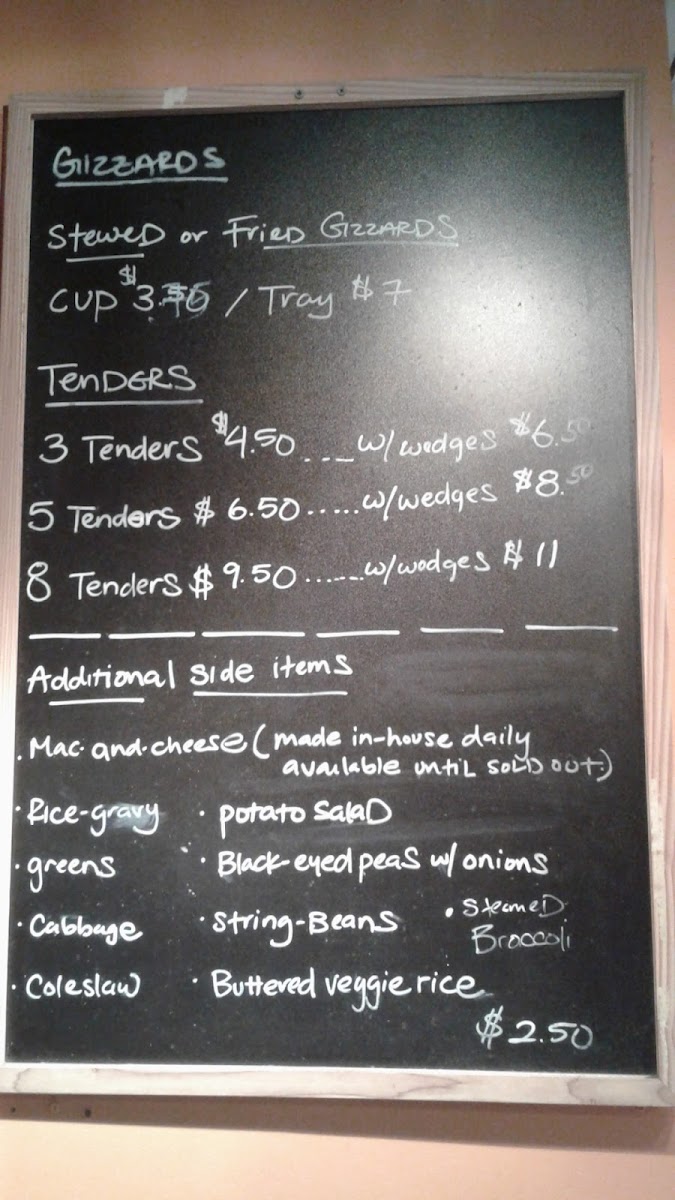 GIZZARDS
Stewed or Fried GIZZARDS
CUP $3. / Tray $7
TENDERS
3 Tenders $4.50 .___ w/wedges $6.50
5 Tenders $ 6.50...... w/wedges $8.50
8 Tenders $ 9.50 ....... w/wedges $11
Additional side items
. Mac-and-cheese (made in-house daily
available until SOLD OUT.)
· Rice-gravy · potato SalaD
· greens · Black-eyed peas w/ onions
· Cabbage · String-Beans • SteameD Broccoli
· Coleslaw · Buttered veggie rice
$2.50